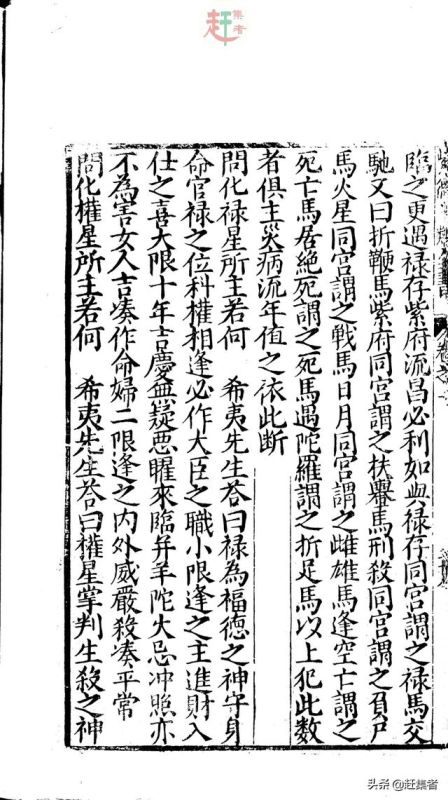 赶集者
臨之更遇禄存紫府流昌必利如與禄存同宮謂之禄馬交
馳又曰折鞭馬紫府同宮謂之扶轝馬刑殺同宮謂之負尸
馬火星同宮謂之戰馬日月同宮謂之雌雄馬逢空亡謂之
死亡馬居絶死謂之死馬遇陀羅謂之折足馬以上犯此數
者俱主災病流年值之依此断
問化禄星所主若何 希夷先生荅曰禄為福德之神守身
命官禄之位科權相逢必作大臣之職小限逢之主進財入
仕之喜大限十年吉慶無疑惡曜來臨并羊陀火忌冲照亦
不為害女人吉湊作命婦二限逢之内外威嚴殺湊平常
問化權星所主若何 希夷先生荅曰權星掌判生殺之神
头条 @赶集者